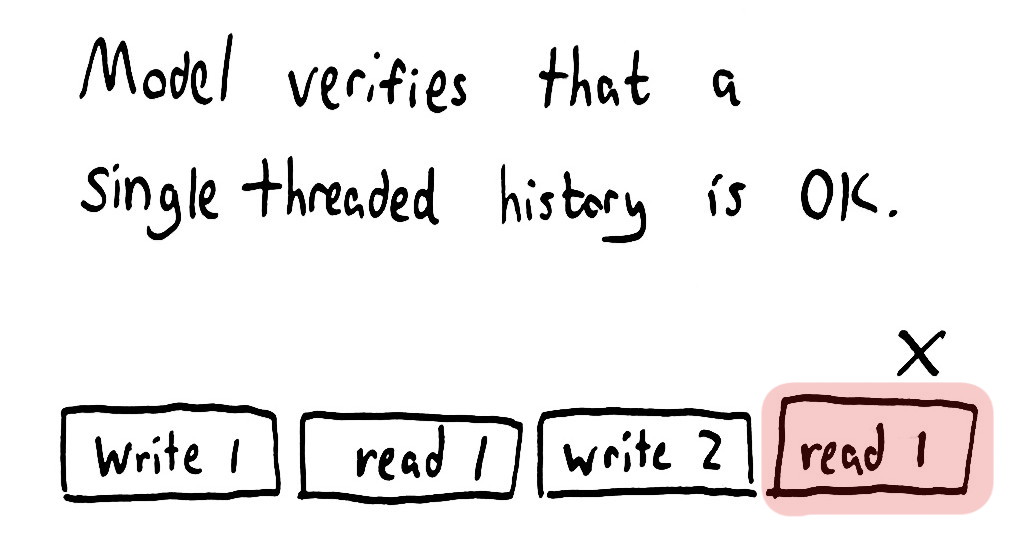 Model verifies that a
single threaded history is OK.
X
Write 1 read 1 write 2 read 1